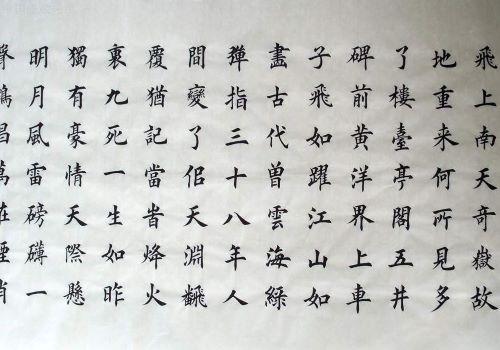 飛上南天奇嶽故
地重来何所見多
了樓臺亭閣五井
碑前黄洋界上車
子飛如躍江山如
畫古代曽雲海綠
彈指三十八年人
間變了佀天淵飜
覆猶記當旹烽火
裏九死一生如昨
獨有豪情天際懸
明月風雷磅礴一
聲萬